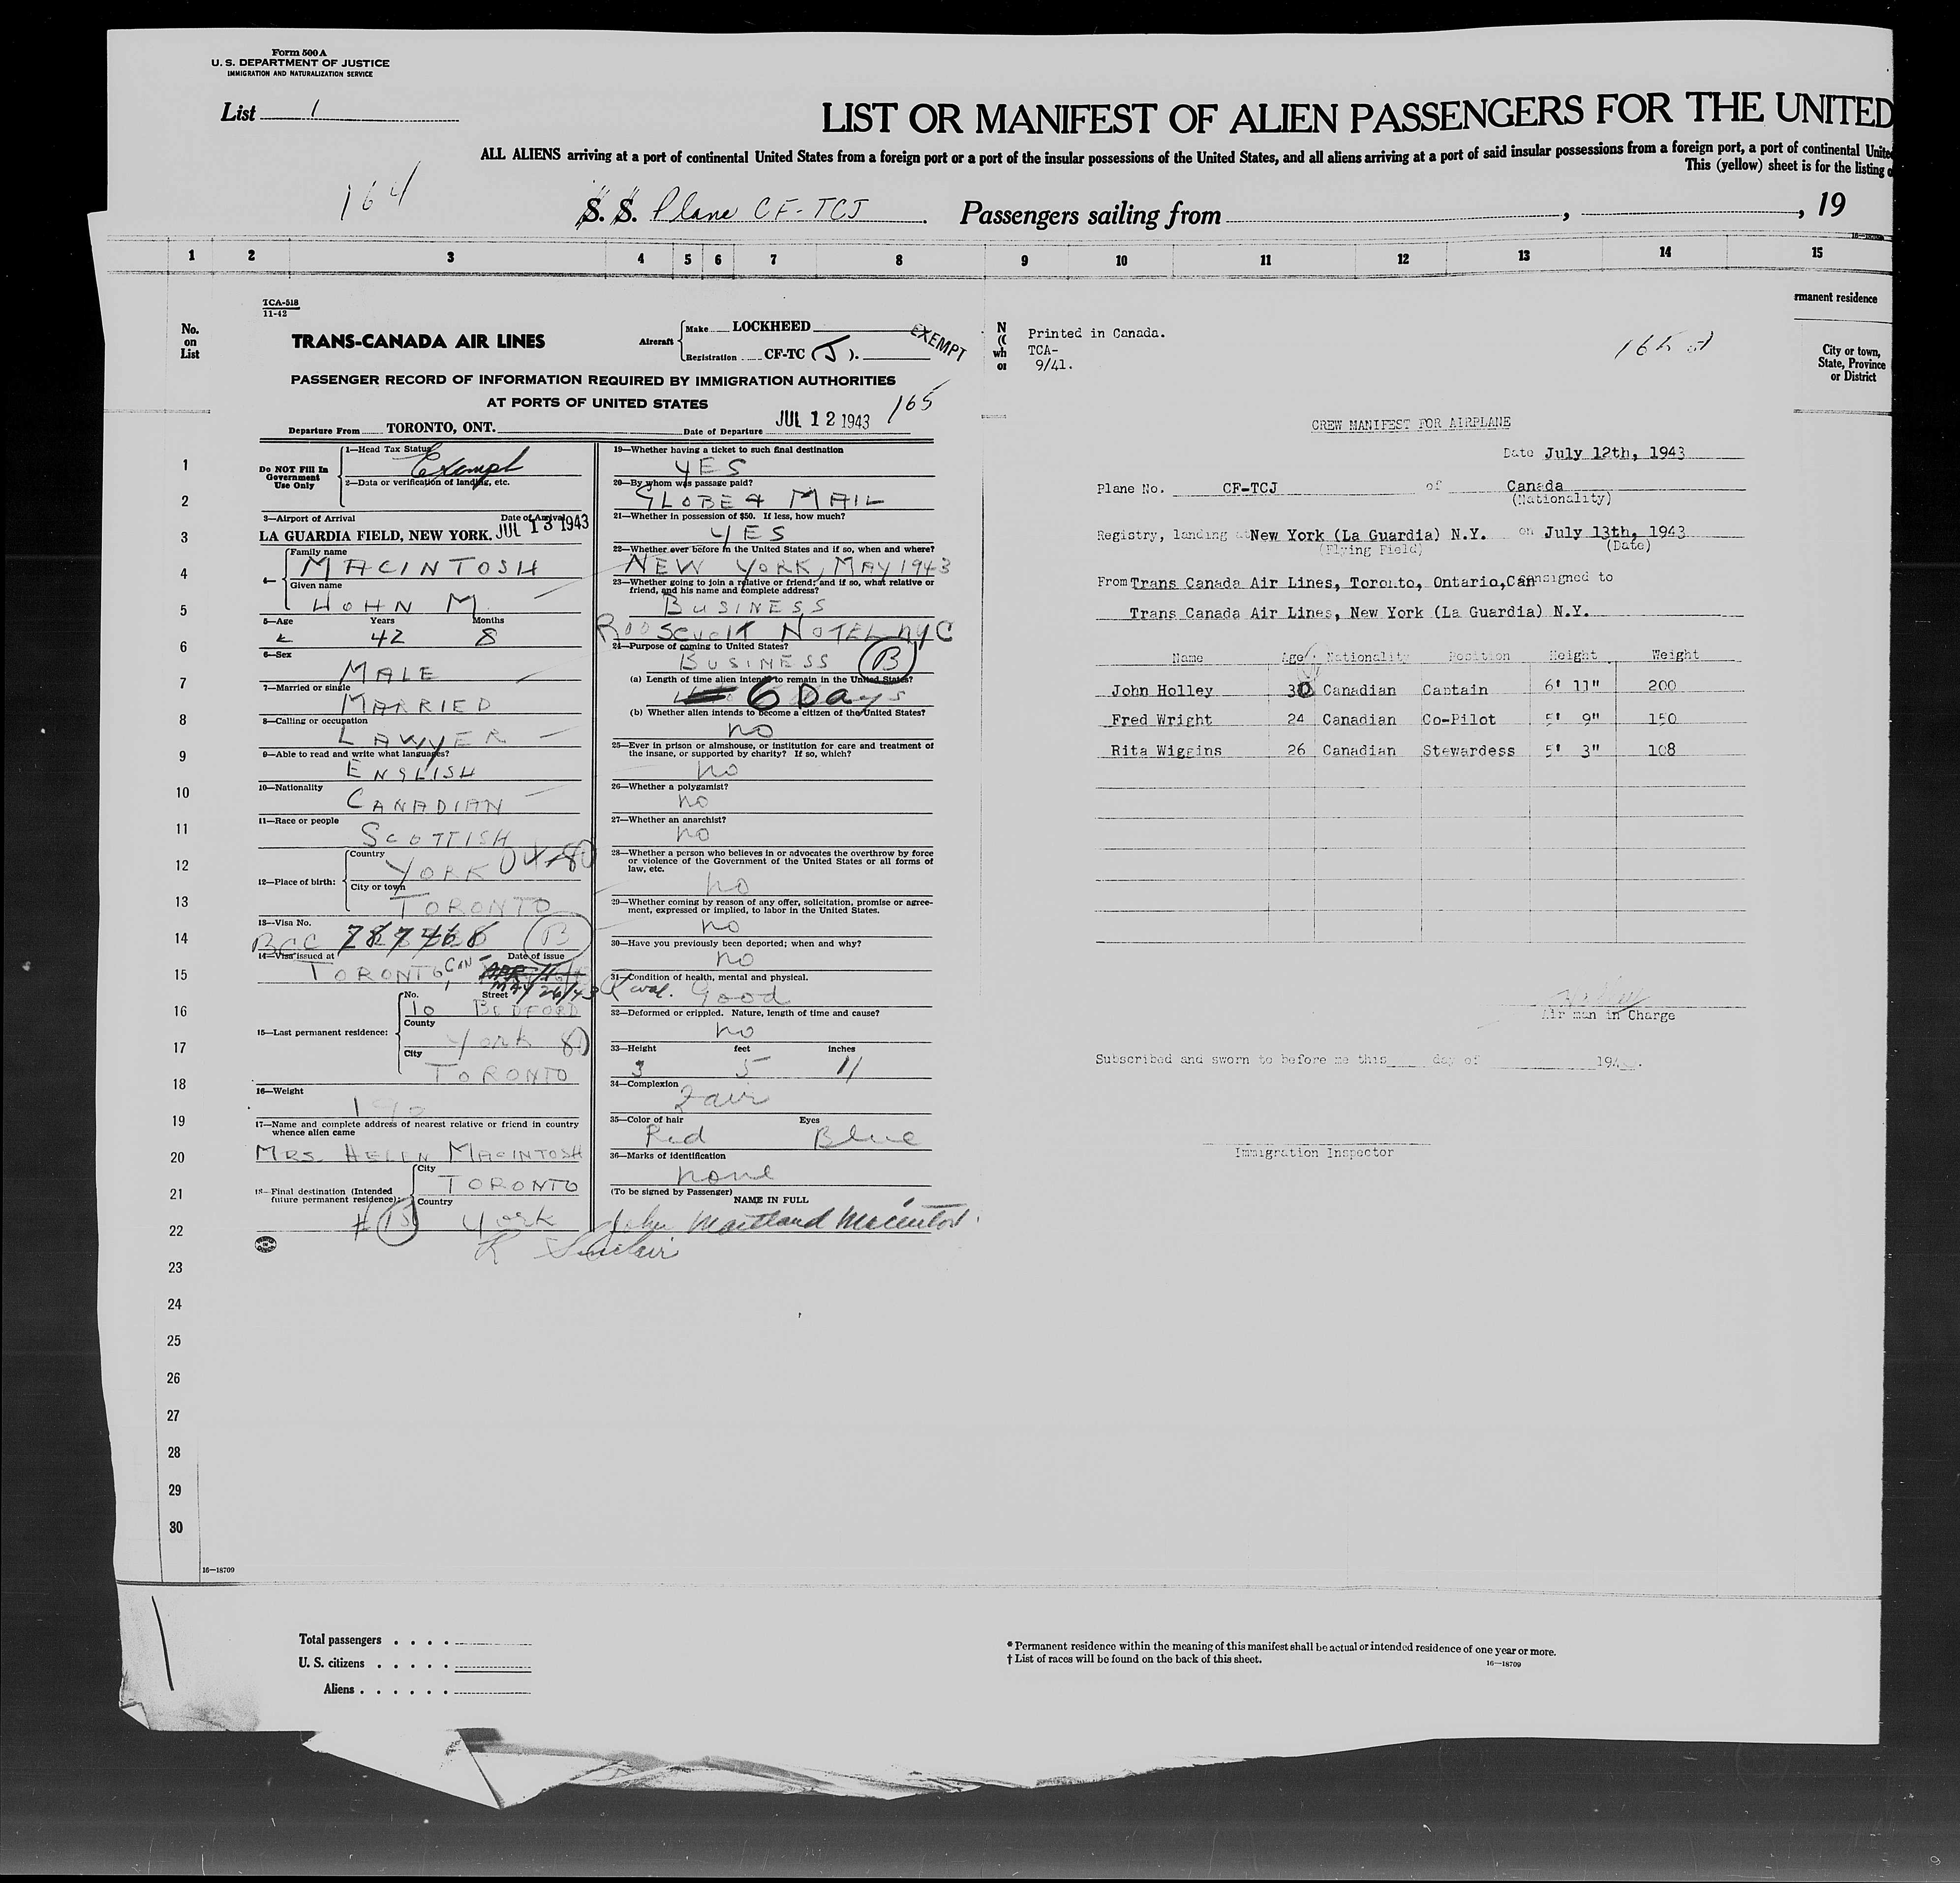 Form 500 A
U. S. DEPARTMENT OF JUSTICE
IMMIGRATION AND NATURALIZATION SERVICE
List 1
LIST OR MANIFEST OF ALIEN PASSENGERS FOR THE UNITED
ALL ALIENS arriving at a port of continental United States from a foreign port or a port of the insular possessions of the United States, and all aliens arriving at a port of said insular possessions from a foreign port, a port of continental Unite
This (yellow) sheet is for the listing
164
S. S. Plane CF-TCJ. Passengers sailing from , , 19
1 2 3 4 5 6 7 8 9 10 11 12 13 14 15
No. on List
TCA-518
11-42
TRANS-CANADA AIR LINES
Aircraft
Make LOCKHEED
Registration CF-TC (J).
EXEMPT
PASSENGER RECORD OF INFORMATION REQUIRED BY IMMIGRATION AUTHORITIES
AT PORTS OF UNITED STATES
165
Departure From TORONTO, ONT. Date of Departure JUL 12 1943
Do NOT Fill In Government Use Only
1—Head Tax Status
Exempt
2—Data or verification of landing, etc.
3—Airport of Arrival Date of Arrival
LA GUARDIA FIELD, NEW YORK. JUL 13 1943
4—
Family name
MACINTOSH
Given name
JOHN M.
5—Age Years Months
42 8
6—Sex
MALE
7—Married or single
MARRIED
8—Calling or occupation
LAWYER
9—Able to read and write what languages?
ENGLISH
10—Nationality
CANADIAN
11—Race or people
SCOTTISH
12—Place of birth:
Country
YORK
City or town
TORONTO
13—Visa No.
BCC B
14—Visa issued at Date of issue
TORONTO, CAN MAY 26/43
15—Last permanent residence:
No. Street
10 BEDFORD
County
York 80
City
TORONTO
16—Weight
190
17—Name and complete address of nearest relative or friend in country
whence alien came
MRS. HELEN MACINTOSH
18—Final destination (Intended
future permanent residence):
City
TORONTO
Country
York
19—Whether having a ticket to such final destination
YES
20—By whom was passage paid?
GLOBE & MAIL
21—Whether in possession of $50. If less, how much?
YES
22—Whether ever before in the United States and if so, when and where?
NEW YORK, MAY 1943
23—Whether going to join a relative or friend; and if so, what relative or
friend, and his name and complete address?
BUSINESS
ROOSEVELT HOTEL NYC
24—Purpose of coming to United States?
BUSINESS B
(a) Length of time alien intends to remain in the United States?
6 Days
(b) Whether alien intends to become a citizen of the United States?
no
25—Ever in prison or almshouse, or institution for care and treatment of
the insane, or supported by charity? If so, which?
no
26—Whether a polygamist?
no
27—Whether an anarchist?
no
28—Whether a person who believes in or advocates the overthrow by force
or violence of the Government of the United States or all forms of
law, etc.
no
29—Whether coming by reason of any offer, solicitation, promise or agree-
ment, expressed or implied, to labor in the United States.
no
30—Have you previously been deported; when and why?
no
31—Condition of health, mental and physical.
Good
32—Deformed or crippled. Nature, length of time and cause?
no
33—Height feet inches
5 11
34—Complexion
Fair
35—Color of hair Eyes
Red Blue
36—Marks of identification
none
(To be signed by Passenger)
NAME IN FULL
John Maitland Macintosh
R Sinclair
N
(C
wh
or
Printed in Canada.
TCA-
9/41.
CREW MANIFEST FOR AIRPLANE
Date July 12th, 1943
Plane No. CF-TCJ of Canada
(Nationality)
Registry, landing at New York (La Guardia) N.Y. on July 13th, 1943
(Flying Field) (Date)
From Trans Canada Air Lines, Toronto, Ontario, Can consigned to
Trans Canada Air Lines, New York (La Guardia) N.Y.
Name Age Nationality Position Height Weight
John Holley 30 Canadian Captain 6' 11" 200
Fred Wright 24 Canadian Co-Pilot 5' 9" 150
Rita Wiggins 26 Canadian Stewardess 5' 3" 108
Air man in Charge
Subscribed and sworn to before me this day of 194 .
Immigration Inspector
rmanent residence
City or town,
State, Province
or District
1
2
3
4
5
6
7
8
9
10
11
12
13
14
15
16
17
18
19
20
21
22
23
24
25
26
27
28
29
30
16—18709
Total passengers . . . .
U. S. citizens . . . . .
Aliens . . . . . .
* Permanent residence within the meaning of this manifest shall be actual or intended residence of one year or more.
† List of races will be found on the back of this sheet.
16—18709